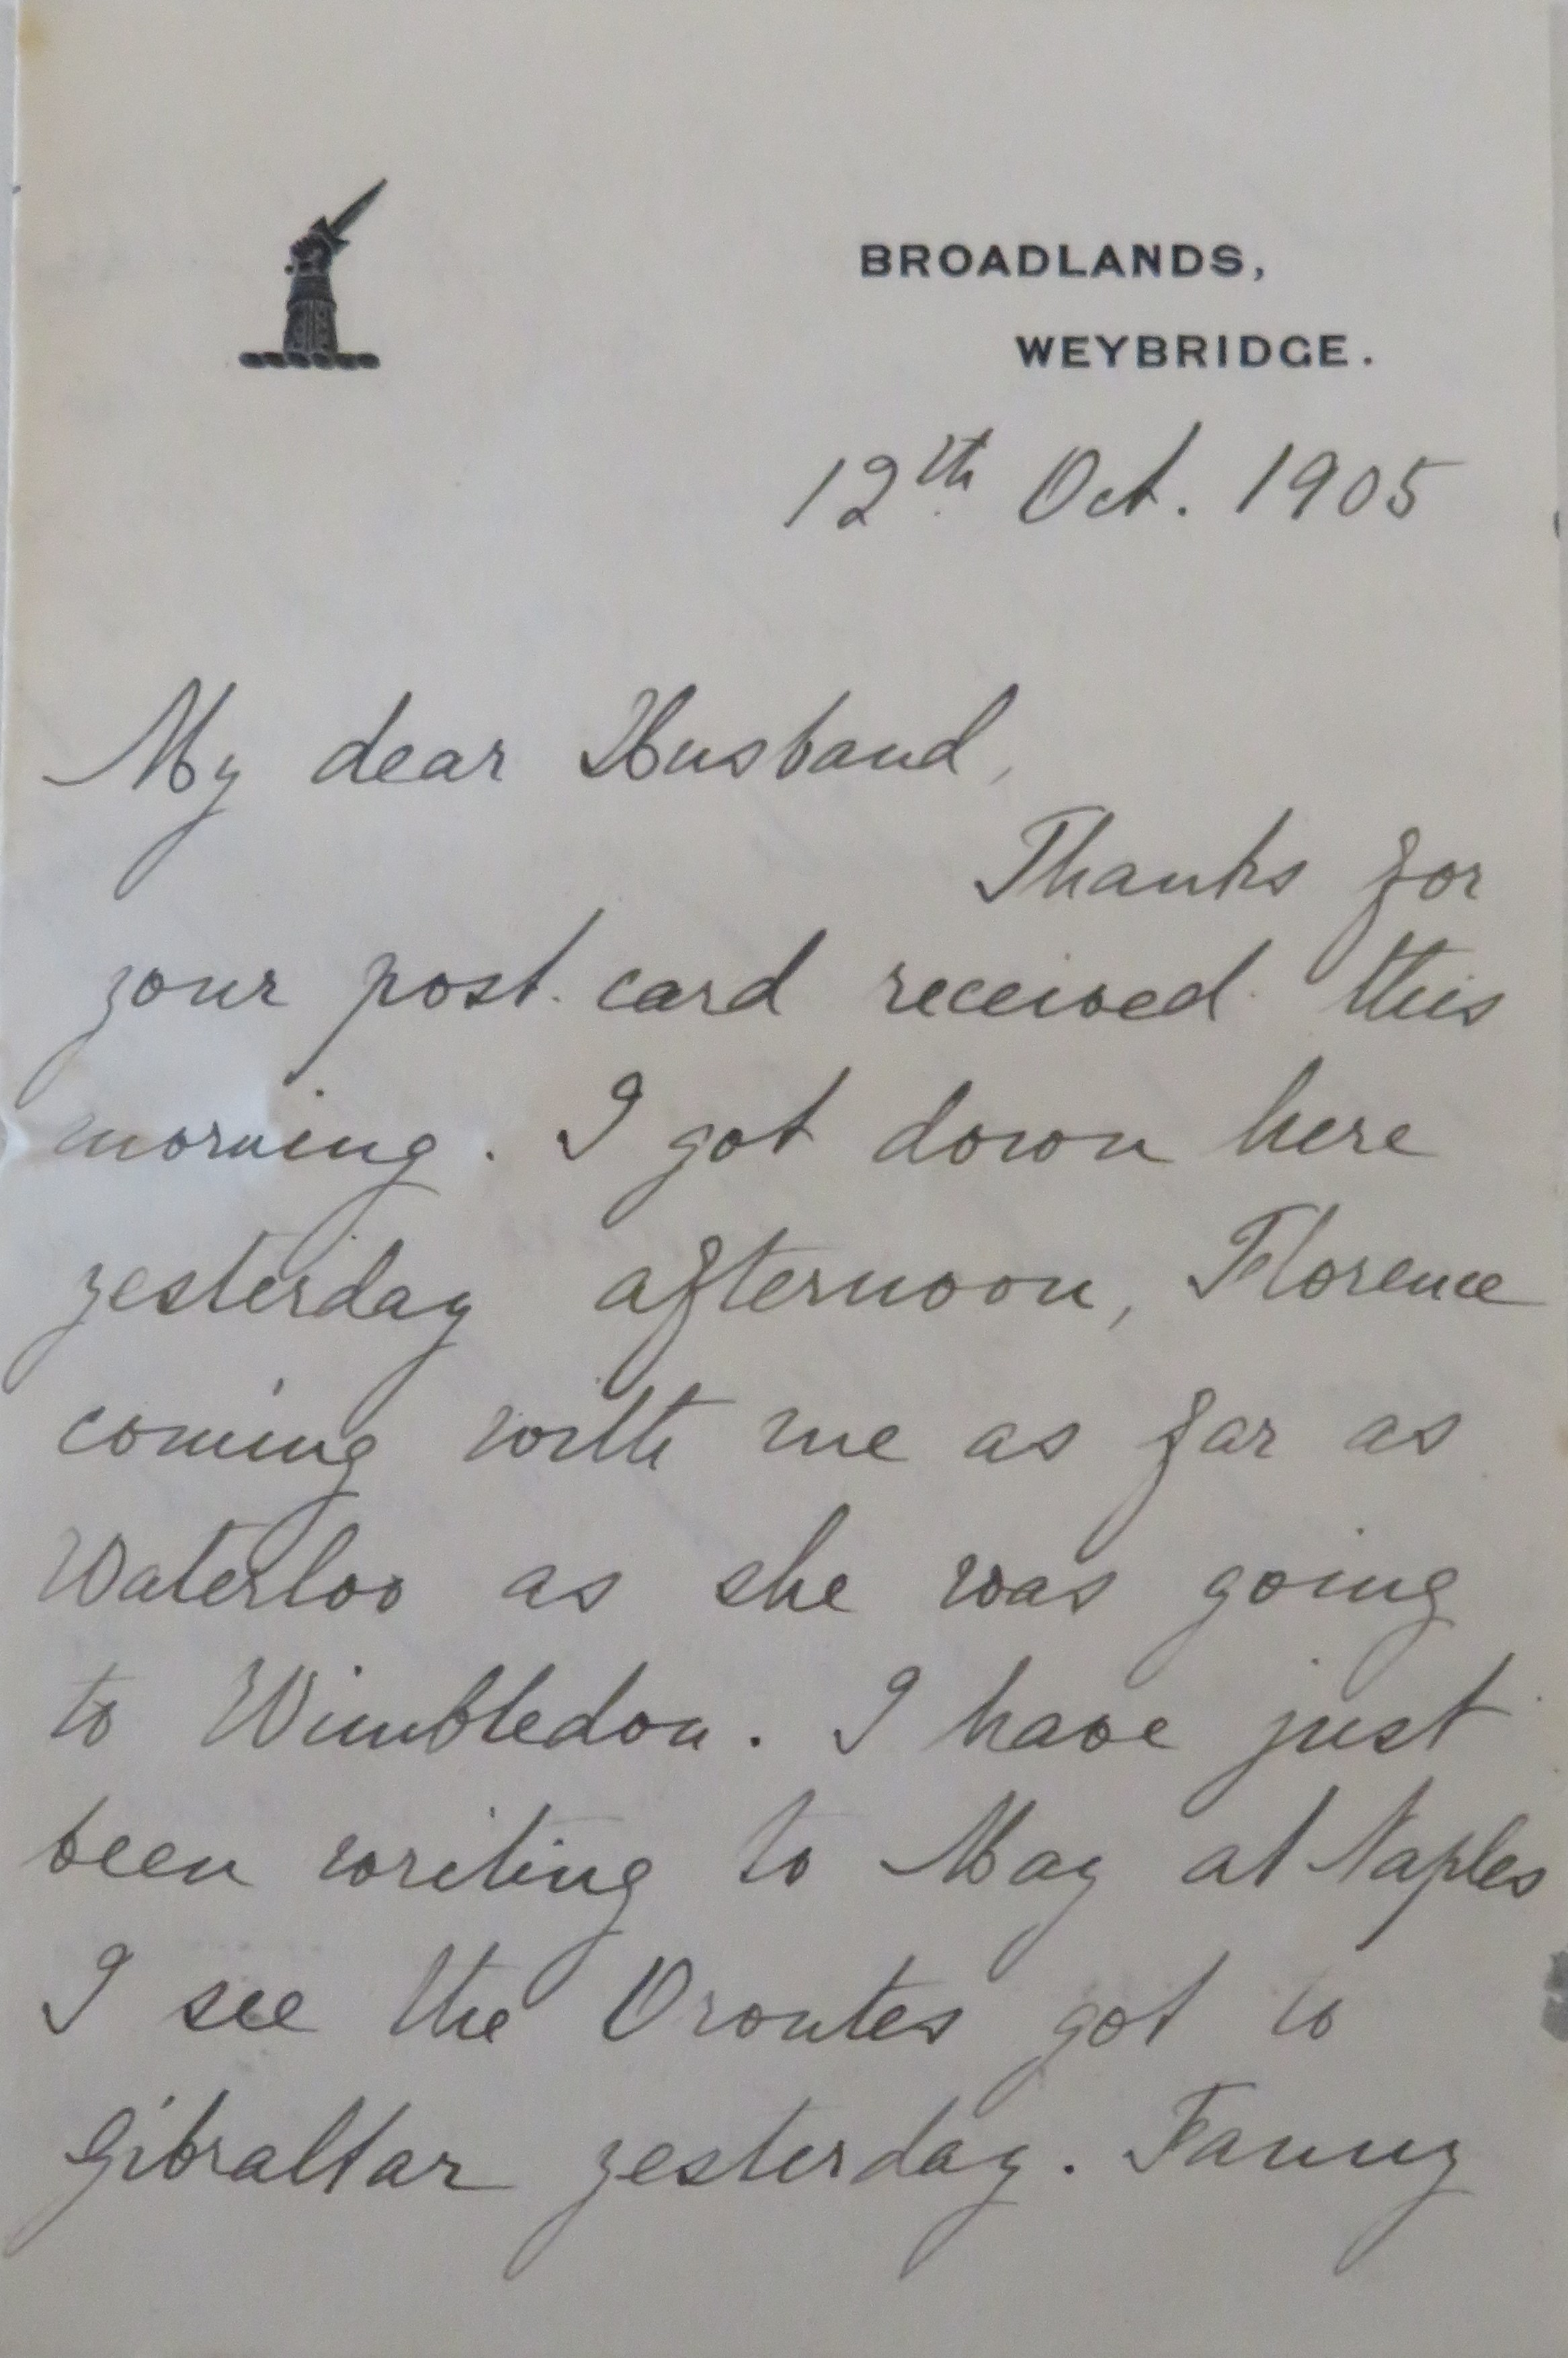 BROADLANDS,
WEYBRIDGE.
12th Oct. 1905
My dear Husband,
Thanks for
your post card received this
morning. I got down here
yesterday afternoon, Florence
coming with me as far as
Waterloo as she was going
to Wimbledon. I have just
been writing to May at Naples
I see the Orontes got to
Gibraltar yesterday. Fanny